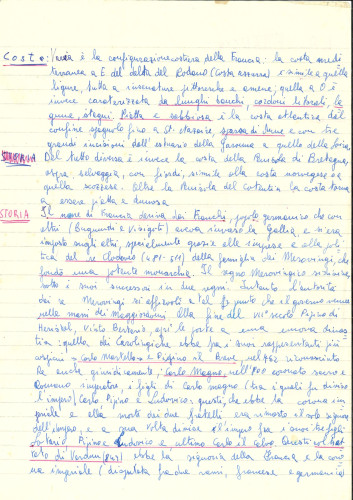 Coste: Varia è la configurazione costiera della Francia: la costa medi
terranea a E. del delta del Rodano (Costa azzurra) è simile a quella
ligure, tutta a insenature pittoresche e amene; quella a O è
invece caratterizzata da lunghi banchi, cordoni litorali, la
gune, stagni. Piatta e sabbiosa è la costa atlantica dal
confine spagnolo fino a St. Nazaire, sparsa di dune e con tre
grandi incisioni dell'estuario della Garonna a quello della Loira.
Del tutto diversa è invece la costa della Penisola di Bretagna,
aspra, selvaggia, con fiordi, simile alla costa norvegese o a
quella scozzese. Oltre la Penisola del Cotentin la costa torna
a essere piatta e dunosa.
STORIA
Il nome di Francia deriva dai Franchi, popolo germanico che con
altri (Burgundi e Visigoti) aveva invaso la Gallia, e si era
imposto sugli altri, specialmente grazie alle imprese e alla poli
tica del re Clodoveo (481-511) della famiglia dei Merovingi, che
fondò una potente monarchia. Il regno Merovingio si divise,
sotto i suoi successori in due regni. Intanto l'autorità
dei re Merovingi si affievolì a tal punto che il governo venne
nelle mani dei Maggiordomi. Alla fine del VII° secolo Pipino di
Heristal, vinto aprì le porte a una nuova dinas
tia: quella dei Carolingi che ebbe fra i suoi rappresentanti più
cospicui Carlo Martello e Pipino il Breve, nel 752
anche giuridicamente; Carlo Magno, nell'800 coronato sacro e
Romano imperatore, i figli di Carlo magno (tra i quali fu diviso
l'impero) Carlo, Pipino e Ludovico: questi, che ebbe la corona im
periale e alla morte dei due fratelli era rimasto il solo signore
dell'Impero, e a sua volta divise l'impero fra i suoi tre figli:
Lotario, Pipino e Ludovico e ultimo Carlo il Calvo. Questi col trat
tato di Verdun (843) ebbe la signoria della Francia e la coro
na imperiale (disputata fra due rami, francese e germanico